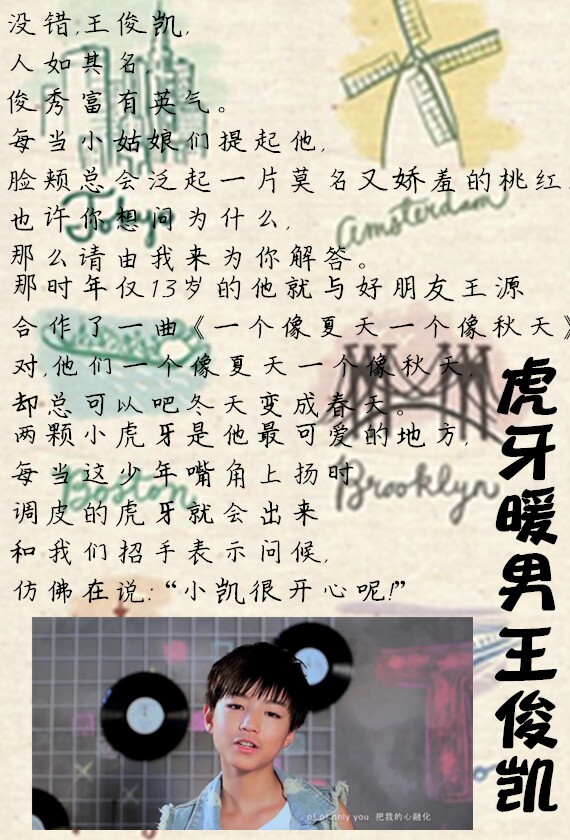 没错,王俊凯,
人如其名,
俊秀富有英气。
每当小姑娘们提起他,
脸颊总会泛起一片莫名又娇羞的桃红,
也许你想问为什么,
那么请由我来为你解答。
那时年仅13岁的他就与好朋友王源
合作了一曲《一个像夏天一个像秋天》
对,他们一个像夏天一个像秋天,
却总可以吧冬天变成春天。
两颗小虎牙是他最可爱的地方,
每当这少年嘴角上扬时
调皮的虎牙就会出来
和我们招手表示问候,
仿佛在说:“小凯很开心呢!”
虎牙暖男王俊凯
Tokyo
Amsterdam
Boston
Brooklyn
only you 把我的心融化